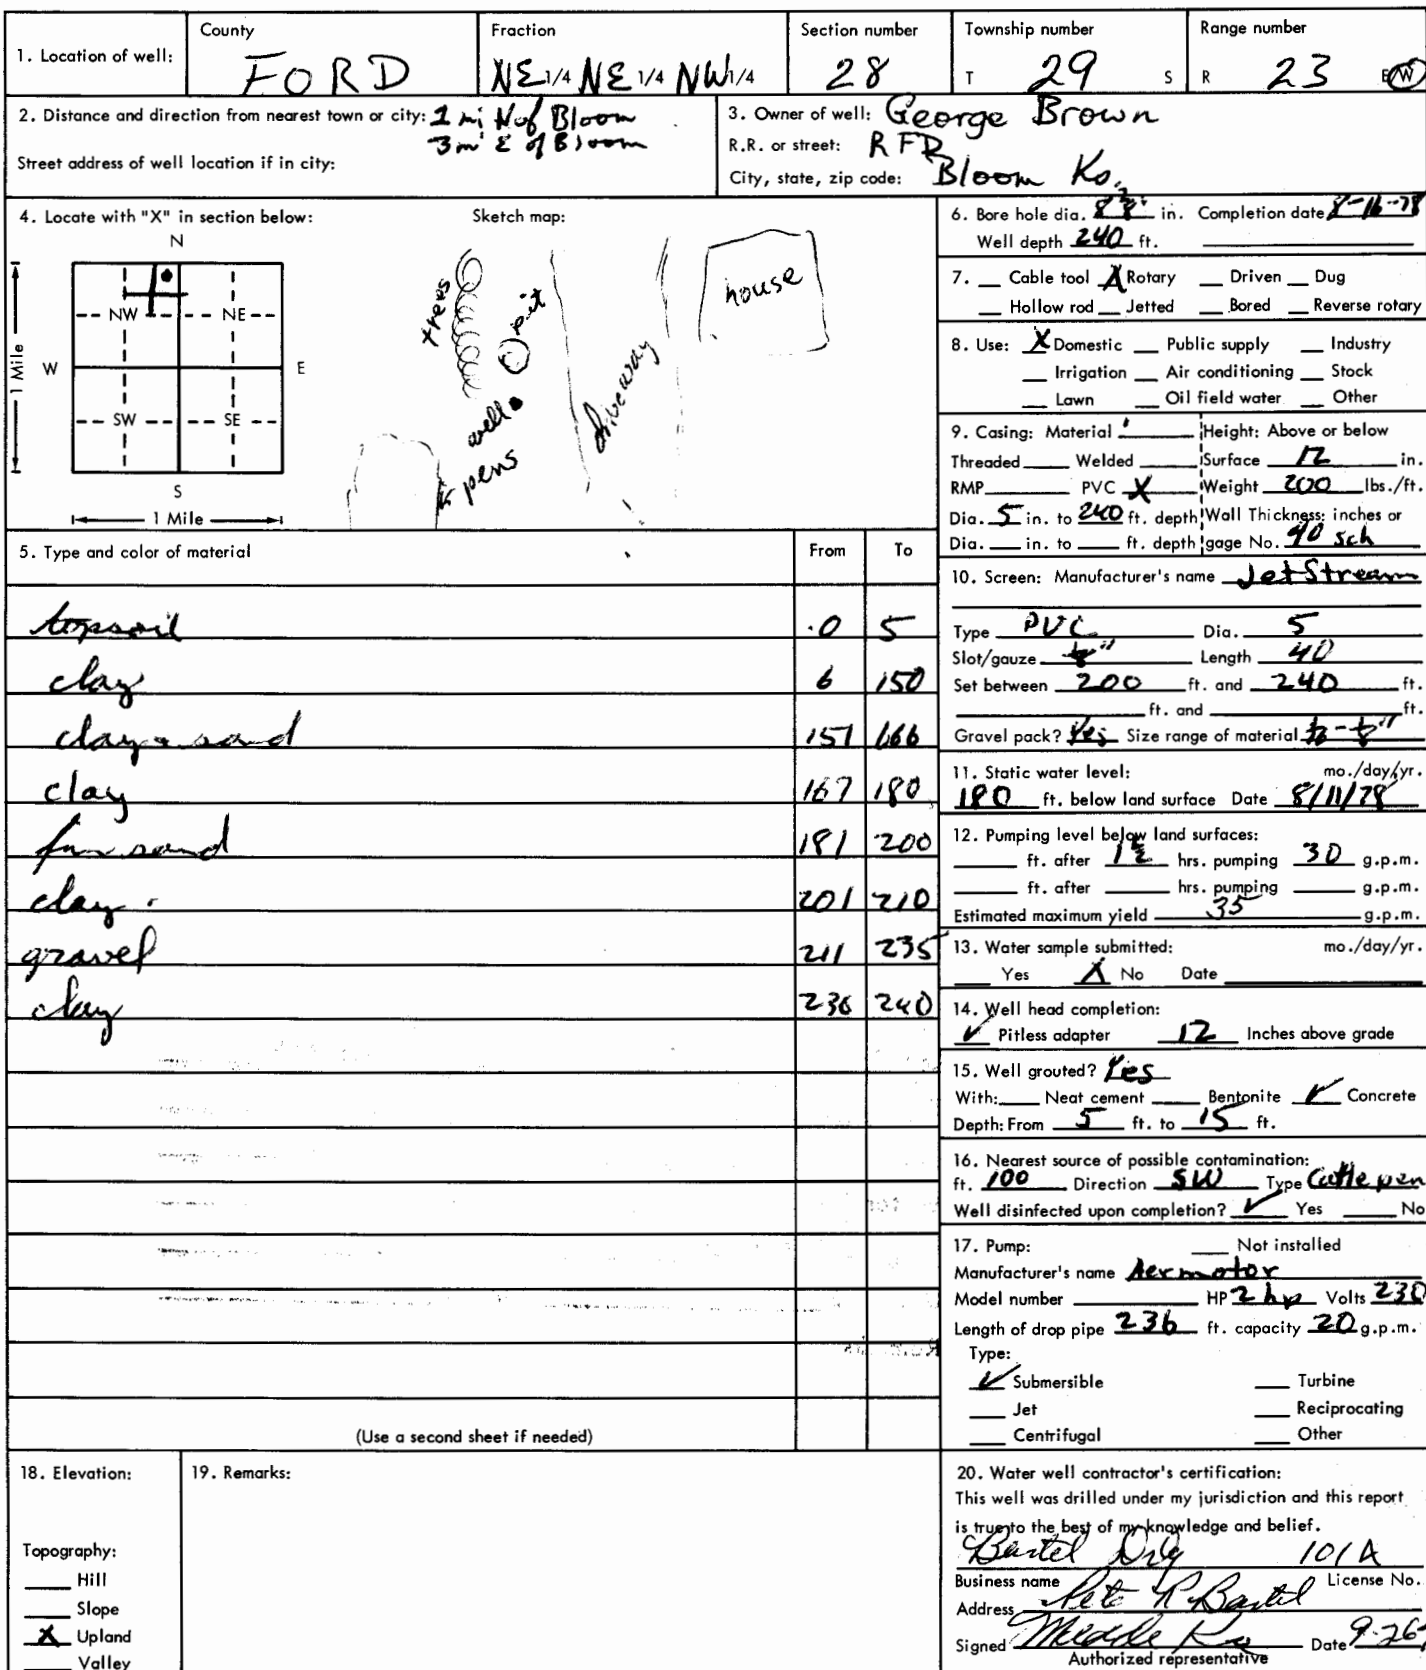 County Fraction Section number Township number Range number
1. Location of well: FORD NE 1/4 NE 1/4 NW 1/4 28 T 29 S R 23 E/W
2. Distance and direction from nearest town or city: 1 mi N of Bloom
3 mi E of Bloom
Street address of well location if in city:
3. Owner of well: George Brown
R.R. or street: RFD
City, state, zip code: Bloom Ks.
4. Locate with "X" in section below: Sketch map:
N
NW NE
W E
SW SE
S
1 Mile
1 Mile
trees
pit
well
pens
driveway
house
5. Type and color of material From To
topsoil 0 5
clay 6 150
clay & sand 151 166
clay 167 180
fine sand 181 200
clay 201 210
gravel 211 235
clay 236 240
(Use a second sheet if needed)
6. Bore hole dia. in. Completion date 8-16-78
Well depth 240 ft.
7. Cable tool X Rotary Driven Dug
Hollow rod Jetted Bored Reverse rotary
8. Use: X Domestic Public supply Industry
Irrigation Air conditioning Stock
Lawn Oil field water Other
9. Casing: Material Height: Above or below
Threaded Welded Surface 12 in.
RMP PVC X Weight 200 lbs./ft.
Dia. 5 in. to 240 ft. depth Wall Thickness: inches or
Dia. in. to ft. depth gage No. 40 sch
10. Screen: Manufacturer's name Jet Stream
Type PVC Dia. 5
Slot/gauze Length 40
Set between 200 ft. and 240 ft.
ft. and ft.
Gravel pack? Yes Size range of material
11. Static water level: mo./day/yr.
180 ft. below land surface Date 8/11/78
12. Pumping level below land surfaces:
ft. after 1½ hrs. pumping 30 g.p.m.
ft. after hrs. pumping g.p.m.
Estimated maximum yield 35 g.p.m.
13. Water sample submitted: mo./day/yr.
Yes X No Date
14. Well head completion:
✓ Pitless adapter 12 Inches above grade
15. Well grouted? Yes
With: Neat cement Bentonite ✓ Concrete
Depth: From 5 ft. to 15 ft.
16. Nearest source of possible contamination:
ft. 100 Direction SW Type Cattle pen
Well disinfected upon completion? ✓ Yes No
17. Pump: Not installed
Manufacturer's name Aermotor
Model number HP 2 hp Volts 230
Length of drop pipe 236 ft. capacity 20 g.p.m.
Type:
✓ Submersible Turbine
Jet Reciprocating
Centrifugal Other
18. Elevation:
Topography:
Hill
Slope
X Upland
Valley
19. Remarks:
20. Water well contractor's certification:
This well was drilled under my jurisdiction and this report
is true to the best of my knowledge and belief.
Bartel Drlg 101A
Business name License No.
Address Pete R Bartel
Signed Meade Ks Date 9-26
Authorized representative